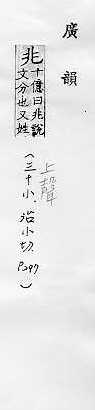 廣韻
兆十億曰兆說
文分也又姓
上聲
(三十小.治小切.P297)